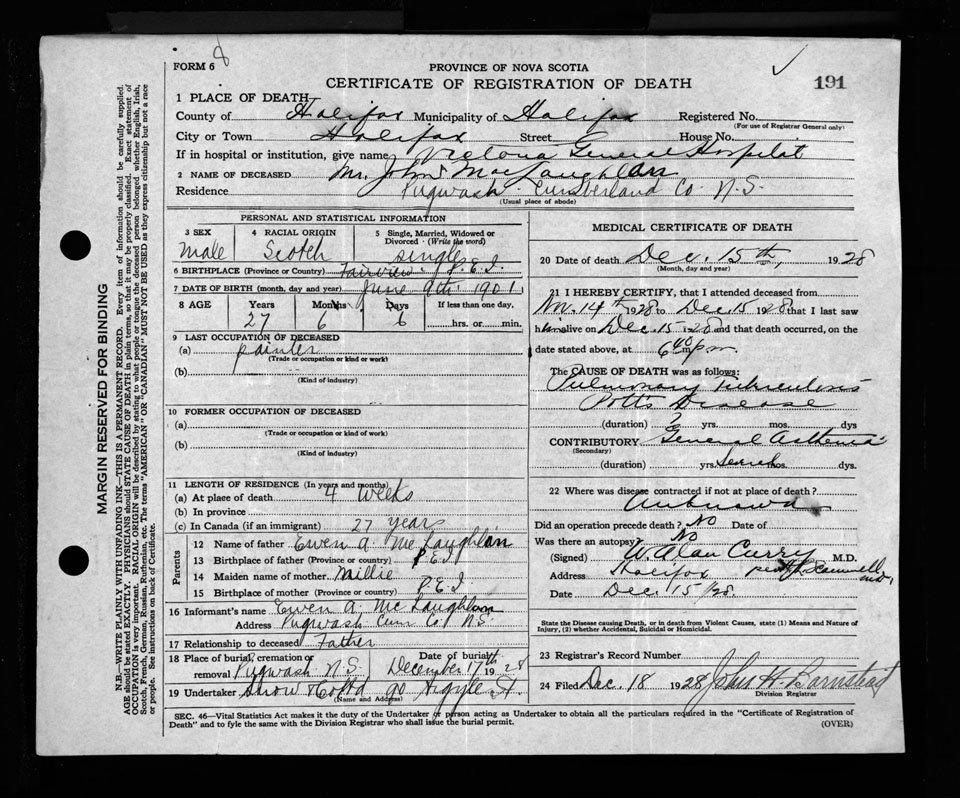 8
FORM 6
PROVINCE OF NOVA SCOTIA
CERTIFICATE OF REGISTRATION OF DEATH
191
1 PLACE OF DEATH
County of Halifax Municipality of Halifax Registered No.
(For use of Registrar General only)
City or Town Halifax Street House No.
If in hospital or institution, give name Victoria General Hospital
2 NAME OF DECEASED Mr. John MacLaughlan
Residence Pugwash Cumberland Co. N.S.
(Usual place of abode)
PERSONAL AND STATISTICAL INFORMATION
3 SEX
male
4 RACIAL ORIGIN
Scotch
5 Single, Married, Widowed or Divorced (Write the word)
single
6 BIRTHPLACE (Province or Country) Fairview P.E.I.
7 DATE OF BIRTH (month, day and year) June 9th 1901
8 AGE Years Months Days If less than one day,
27 6 6 hrs. or min.
9 LAST OCCUPATION OF DECEASED
(a) painter
(Trade or occupation or kind or work)
(b)
(Kind of industry)
10 FORMER OCCUPATION OF DECEASED
(a)
(Trade or occupation or kind of work)
(b)
(Kind of industry)
11 LENGTH OF RESIDENCE (In years and months)
(a) At place of death 4 weeks
(b) In province
(c) In Canada (if an immigrant) 27 years
Parents
12 Name of father Ewen A. McLaughlan
13 Birthplace of father (Province or country) P.E.I.
14 Maiden name of mother Millie
15 Birthplace of mother (Province or country) P.E.I.
16 Informant's name Ewen A. McLaughlan
Address Pugwash Cum Co. N.S.
17 Relationship to deceased Father
18 Place of burial, cremation or removal Pugwash N.S. Date of burial December 17th 1928
19 Undertaker Snow &amp; Co Ltd 90 Argyle St.
(Name and Address)
MEDICAL CERTIFICATE OF DEATH
20 Date of death Dec. 15th, 1928
(Month, day and year)
21 I HEREBY CERTIFY, that I attended deceased from
Nov. 14th 1928 to Dec 15 1928 that I last saw
him alive on Dec. 15 1928 and that death occurred, on the
date stated above, at 6 40 pm. m.
The CAUSE OF DEATH was as follows:
Pulmonary Tuberculosis
Pott's Disease
(duration) 2 yrs. mos. dys
CONTRIBUTORY General Asthenia
(Secondary)
(duration) yrs. Several mos. dys.
22 Where was disease contracted if not at place of death?
Unknown
Did an operation precede death? No Date of
Was there an autopsy? No
(Signed) W. Alan Curry M.D.
Address Halifax
Date Dec. 15/28
State the Disease causing Death, or in death from Violent Causes, state (1) Means and Nature of Injury, (2) whether Accidental, Suicidal or Homicidal.
23 Registrar's Record Number
24 Filed Dec 18 1928 John H. Barnstead
Division Registrar
SEC. 46—Vital Statistics Act makes it the duty of the Undertaker or person acting as Undertaker to obtain all the particulars required in the "Certificate of Registration of
Death" and to fyle the same with the Division Registrar who shall issue the burial permit.
(OVER)
MARGIN RESERVED FOR BINDING
N.B.—WRITE PLAINLY WITH UNFADING INK—THIS IS A PERMANENT RECORD. Every item of information should be carefully supplied.
AGE should be stated EXACTLY. PHYSICIANS should STATE CAUSE OF DEATH in plain terms, so that it may be properly classified. Exact statement of
OCCUPATION is very important. RACIAL ORIGIN will be described by stating to what people or tongue the deceased person belonged whether English, Irish,
Scotch, French, German, Russian, Ruthenian, etc. The terms "AMERICAN" OR "CANADIAN" MUST NOT BE USED as they express citizenship but not a race
or people. See instructions on back of Certificate.